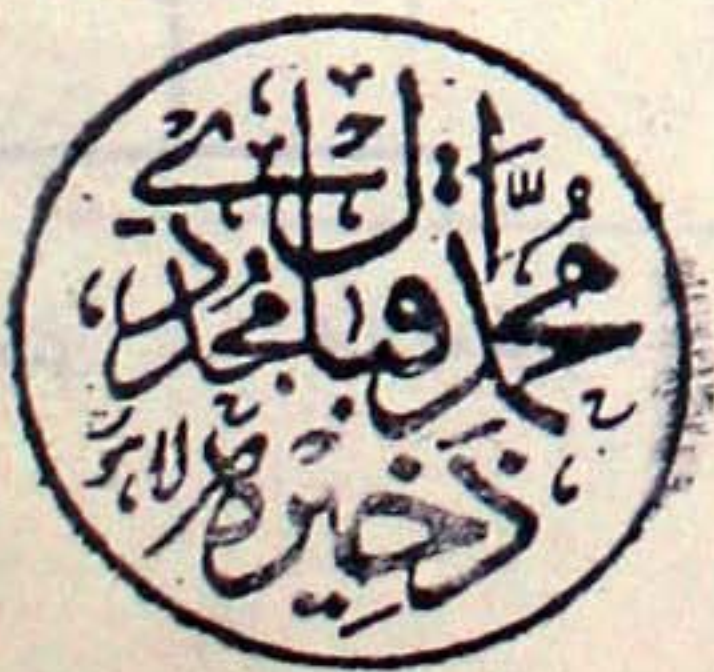 محمّد اقبال مُجدّدی
ذخیرہ لاہور